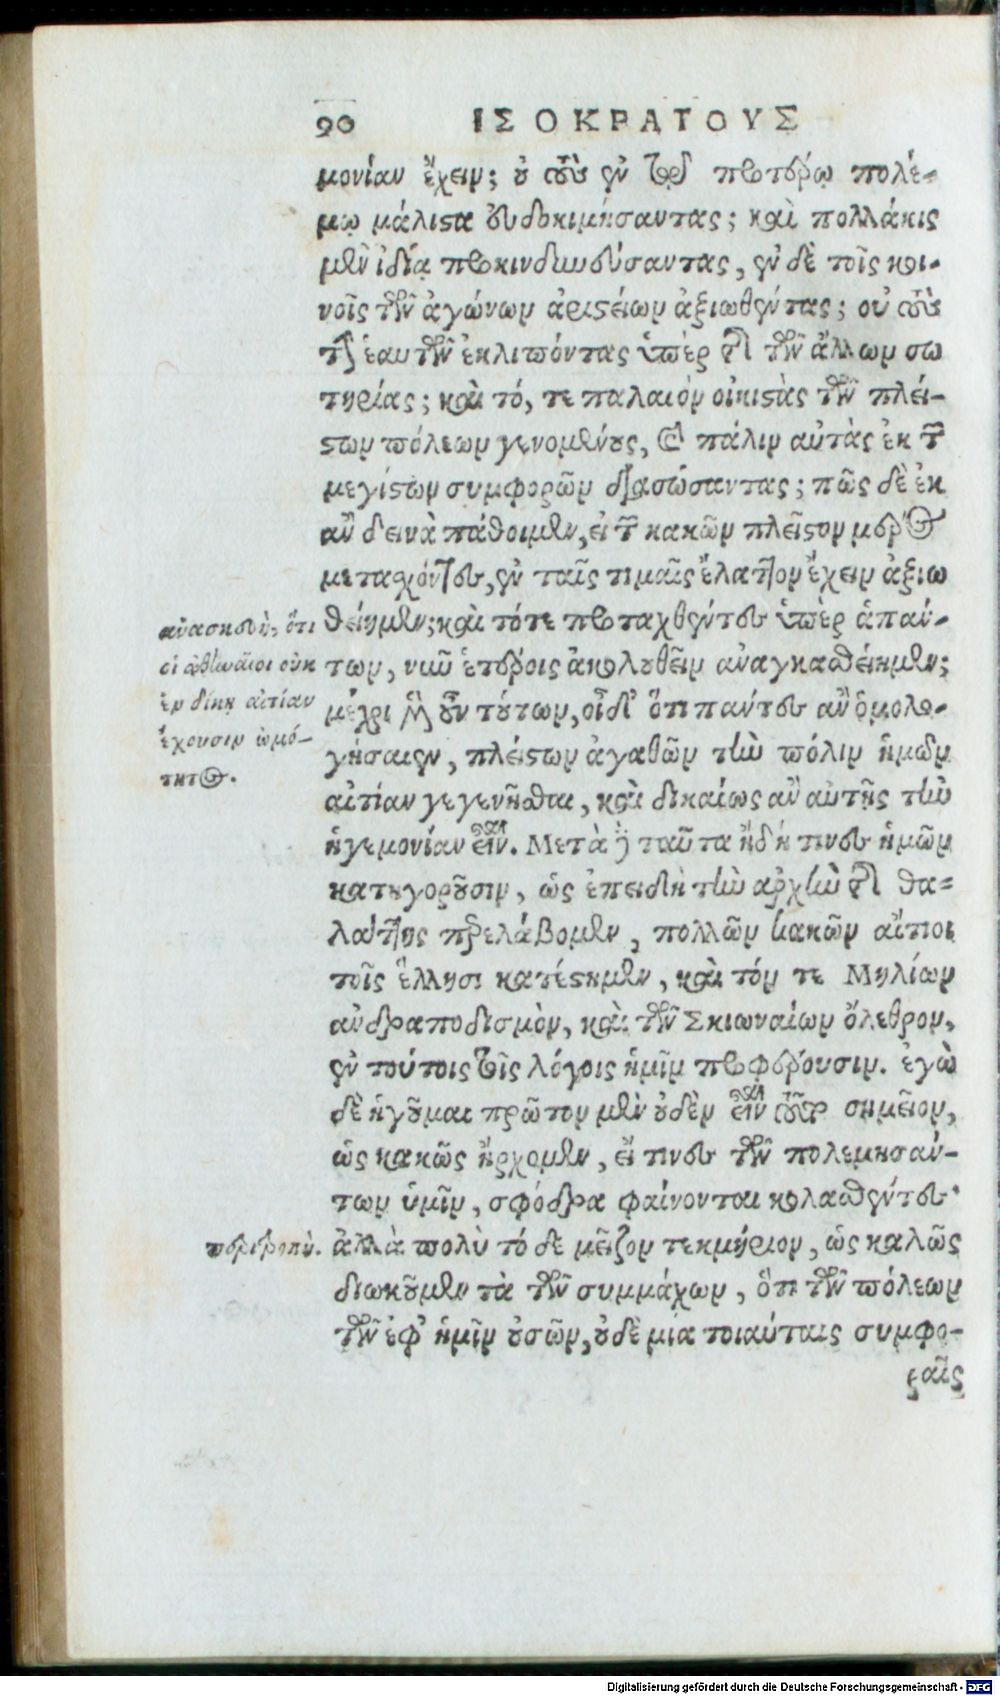 90 ΙΣΟΚΡΑΤΟΥΣ
μονίαν ἔχειν; οὐ τοὺς ἐν τῷ προτέρῳ πολέ-
μῳ μάλιστα εὐδοκιμήσαντας; καὶ πολλάκις
μὲν ἰδίᾳ προκινδυνεύσαντας, ἐν δὲ τοῖς κοι-
νοῖς τῶν ἀγώνων ἀριστείων ἀξιωθέντας; οὐ τοὺς
τὴν ἑαυτῶν ἐκλιπόντας ὑπὲρ τῆς τῶν ἄλλων σω
τηρίας; καὶ τό, τε παλαιὸν οἰκιστὰς τῶν πλεί-
στων πόλεων γενομένους, καὶ πάλιν αὐτὰς ἐκ τῶν
μεγίστων συμφορῶν διασώσαντας; πῶς δὲ ἐκ
ἂν δεινὰ πάθοιμεν, εἰ τῶν κακῶν πλεῖστον μέρος
μετασχόντες, ἐν ταῖς τιμαῖς ἔλαττον ἔχειν ἀξιω
θείημεν; καὶ τότε προταχθέντες ὑπὲρ ἁπάν-
των, νῦν ἑτέροις ἀκολουθεῖν ἀναγκασθείημεν;
μέχρι μὲν οὖν τούτων, οἶδ' ὅτι πάντες ἂν ὁμολο-
γήσαιεν, πλείστων ἀγαθῶν τὴν πόλιν ἡμῶν
αἰτίαν γεγενῆσθαι, καὶ δικαίως ἂν αὐτῆς τὴν
ἡγεμονίαν εἶναι. Μετὰ δὲ ταῦτα ἤδη τινες ἡμῶν
κατηγοροῦσιν, ὡς ἐπειδὴ τὴν ἀρχὴν τῆς θα-
λάττης παρελάβομεν, πολλῶν κακῶν αἴτιοι
τοῖς ἕλλησι κατέστημεν, καὶ τόν τε Μηλίων
ἀνδραποδισμὸν, καὶ τῶν Σκιωναίων ὄλεθρον,
ἐν τούτοις τοῖς λόγοις ἡμῖν προφέρουσιν. ἐγὼ
δὲ ἡγοῦμαι πρῶτον μὲν οὐδὲν εἶναι τοῦτο σημεῖον,
ὡς κακῶς ἤρχομεν, εἴ τινες τῶν πολεμησάν-
των ὑμῖν, σφόδρα φαίνονται κολασθέντες·
ἀλλὰ πολὺ τό δε μεῖζον τεκμήριον, ὡς καλῶς
διῳκοῦμεν τὰ τῶν συμμάχων, ὅτι τῶν πόλεων
τῶν ἐφ' ἡμῖν οὐσῶν, οὐδὲ μία τοιαύταις συμφο-
ραῖς
ἀνασκευὴ, ὅτι
οἱ ἀθηναῖοι οὐκ
ἐν δίκῃ αἰτίαν
ἔχουσιν ὠμό-
τητος.
περιτροπὴ.
Digitalisierung gefördert durch die Deutsche Forschungsgemeinschaft - DFG